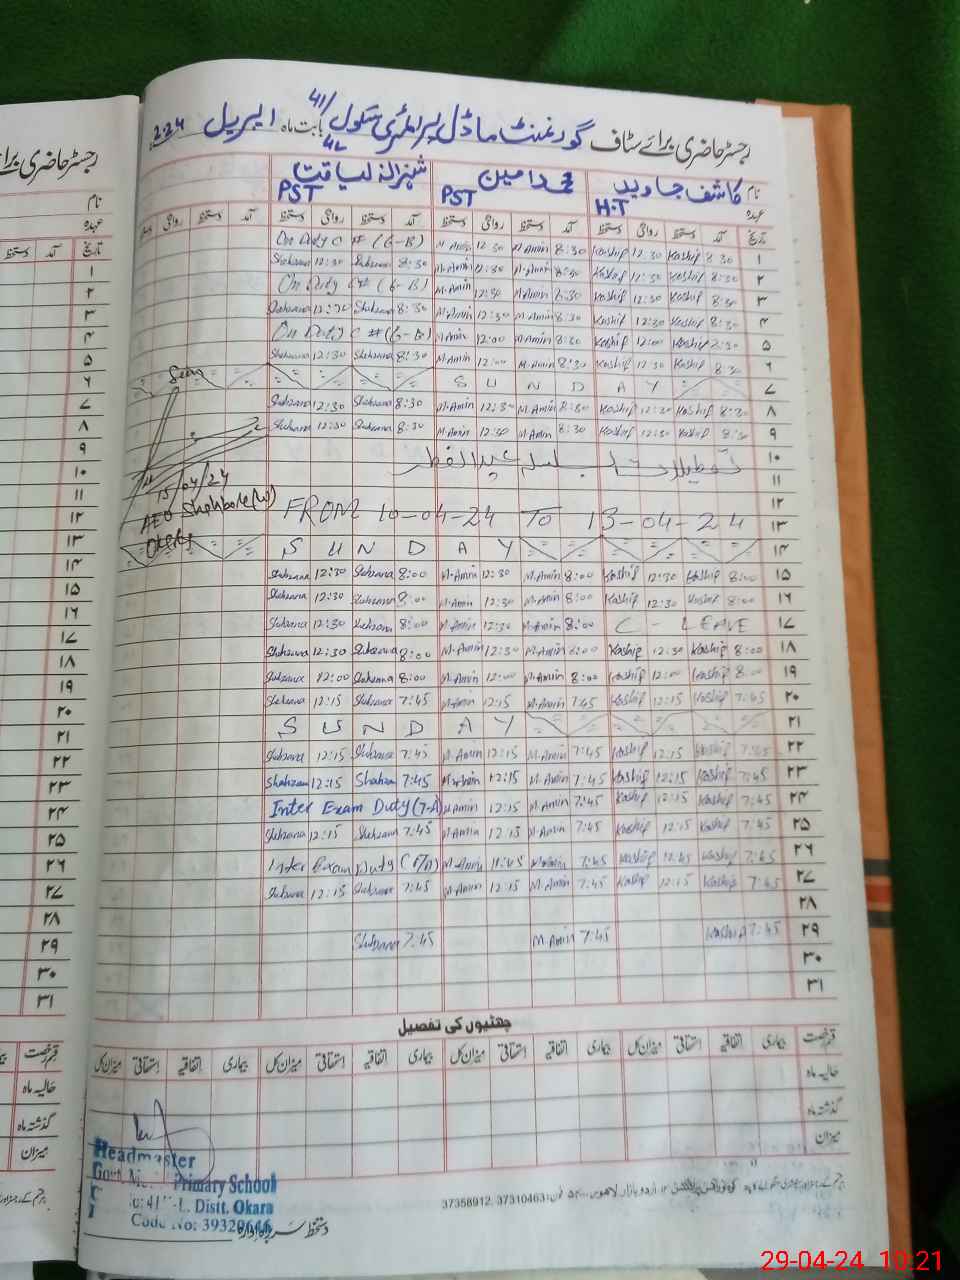 رجسٹر حاضری برائے سٹاف گورنمنٹ ماڈل پرائمری سکول 41/4L بابت ماہ اپریل 2024
نام کاشف جاوید محمد امین شہزانہ لیاقت
عہدہ H.T PST PST
تاریخ آمد دستخط روانگی دستخط آمد دستخط روانگی دستخط آمد دستخط روانگی دستخط آمد دستخط روانگی دستخط
۱ 8:30 Kashif 12:30 Kashif 8:30 M.Amin 12:30 M.Amin On Duty C # (G-B)
۲ 8:30 Kashif 12:30 Kashif 8:30 M.Amin 12:30 M.Amin 8:30 Shahzana 12:30 Shahzana
۳ 8:30 Kashif 12:30 Kashif 8:30 M.Amin 12:30 M.Amin On Duty C # (G-B)
۴ 8:30 Kashif 12:30 Kashif 8:30 M.Amin 12:30 M.Amin 8:30 Shahzana 12:30 Shahzana
۵ 8:30 Kashif 12:00 Kashif 8:30 M.Amin 12:00 M.Amin On Duty C # (G-B)
۶ 8:30 Kashif 12:30 Kashif 8:30 M.Amin 12:00 M.Amin 8:30 Shahzana 12:30 Shahzana
۷ S U N D A Y
Seen
۸ 8:30 Kashif 12:30 Kashif 8:30 M.Amin 12:30 M.Amin 8:30 Shahzana 12:30 Shahzana
۹ 8:30 Kashif 12:30 Kashif 8:30 M.Amin 12:30 M.Amin 8:30 Shahzana 12:30 Shahzana
۱۰ تعطیلات بسلسلہ عیدالفطر
۱۱
15/04/24
۱۲
AEO Shahbore(W)
۱۳ FROM 10-04-24 To 13-04-24
Okara
۱۴ S U N D A Y
۱۵ 8:00 Kashif 12:30 Kashif 8:00 M.Amin 12:30 M.Amin 8:00 Shahzana 12:30 Shahzana
۱۶ 8:00 Kashif 12:30 Kashif 8:00 M.Amin 12:30 M.Amin 8:00 Shahzana 12:30 Shahzana
۱۷ C - LEAVE 8:00 M.Amin 12:30 M.Amin 8:00 Shahzana 12:30 Shahzana
۱۸ 8:00 Kashif 12:30 Kashif 8:00 M.Amin 12:30 M.Amin 8:00 Shahzana 12:30 Shahzana
۱۹ 8:00 Kashif 12:00 Kashif 8:00 M.Amin 12:00 M.Amin 8:00 Shahzana 12:00 Shahzana
۲۰ 7:45 Kashif 12:15 Kashif 7:45 M.Amin 12:15 M.Amin 7:45 Shahzana 12:15 Shahzana
۲۱ S U N D A Y
۲۲ 7:45 Kashif 12:15 Kashif 7:45 M.Amin 12:15 M.Amin 7:45 Shahzana 12:15 Shahzana
۲۳ 7:45 Kashif 12:15 Kashif 7:45 M.Amin 12:15 M.Amin 7:45 Shahzana 12:15 Shahzana
۲۴ 7:45 Kashif 12:15 Kashif 7:45 M.Amin 12:15 M.Amin Inter Exam Duty (7-A)
۲۵ 7:45 Kashif 12:15 Kashif 7:45 M.Amin 12:15 M.Amin 7:45 Shahzana 12:15 Shahzana
۲۶ 7:45 Kashif 11:45 Kashif 7:45 M.Amin 11:45 M.Amin Inter Exam Duty (7/A)
۲۷ 7:45 Kashif 12:15 Kashif 7:45 M.Amin 12:15 M.Amin 7:45 Shahzana 12:15 Shahzana
۲۸
۲۹ 7:45 Kashif 7:45 M.Amin 7:45 Shahzana
۳۰
۳۱
چھٹیوں کی تفصیل
قسم رخصت بیماری اتفاقیہ استحقاقی میزان کل بیماری اتفاقیہ استحقاقی میزان کل بیماری اتفاقیہ استحقاقی میزان کل
حالیہ ماہ
گذشتہ ماہ
میزان
Headmaster
Govt. Primary School
Distt. Okara
Code No: 39320646
دستخط سربراہ ادارہ
اردو بازار لاہور۔ فون: 37310463, 37358912
رجسٹر حاضری
نام
عہدہ
تاریخ آمد دستخط
۱
۲
۳
۴
۵
۶
۷
۸
۹
۱۰
۱۱
۱۲
۱۳
۱۴
۱۵
۱۶
۱۷
۱۸
۱۹
۲۰
۲۱
۲۲
۲۳
۲۴
۲۵
۲۶
۲۷
۲۸
۲۹
۳۰
۳۱
قسم رخصت
حالیہ ماہ
گذشتہ ماہ
میزان
29-04-24 10:21